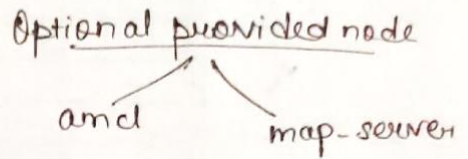 Optional provided node
amcl
map-server